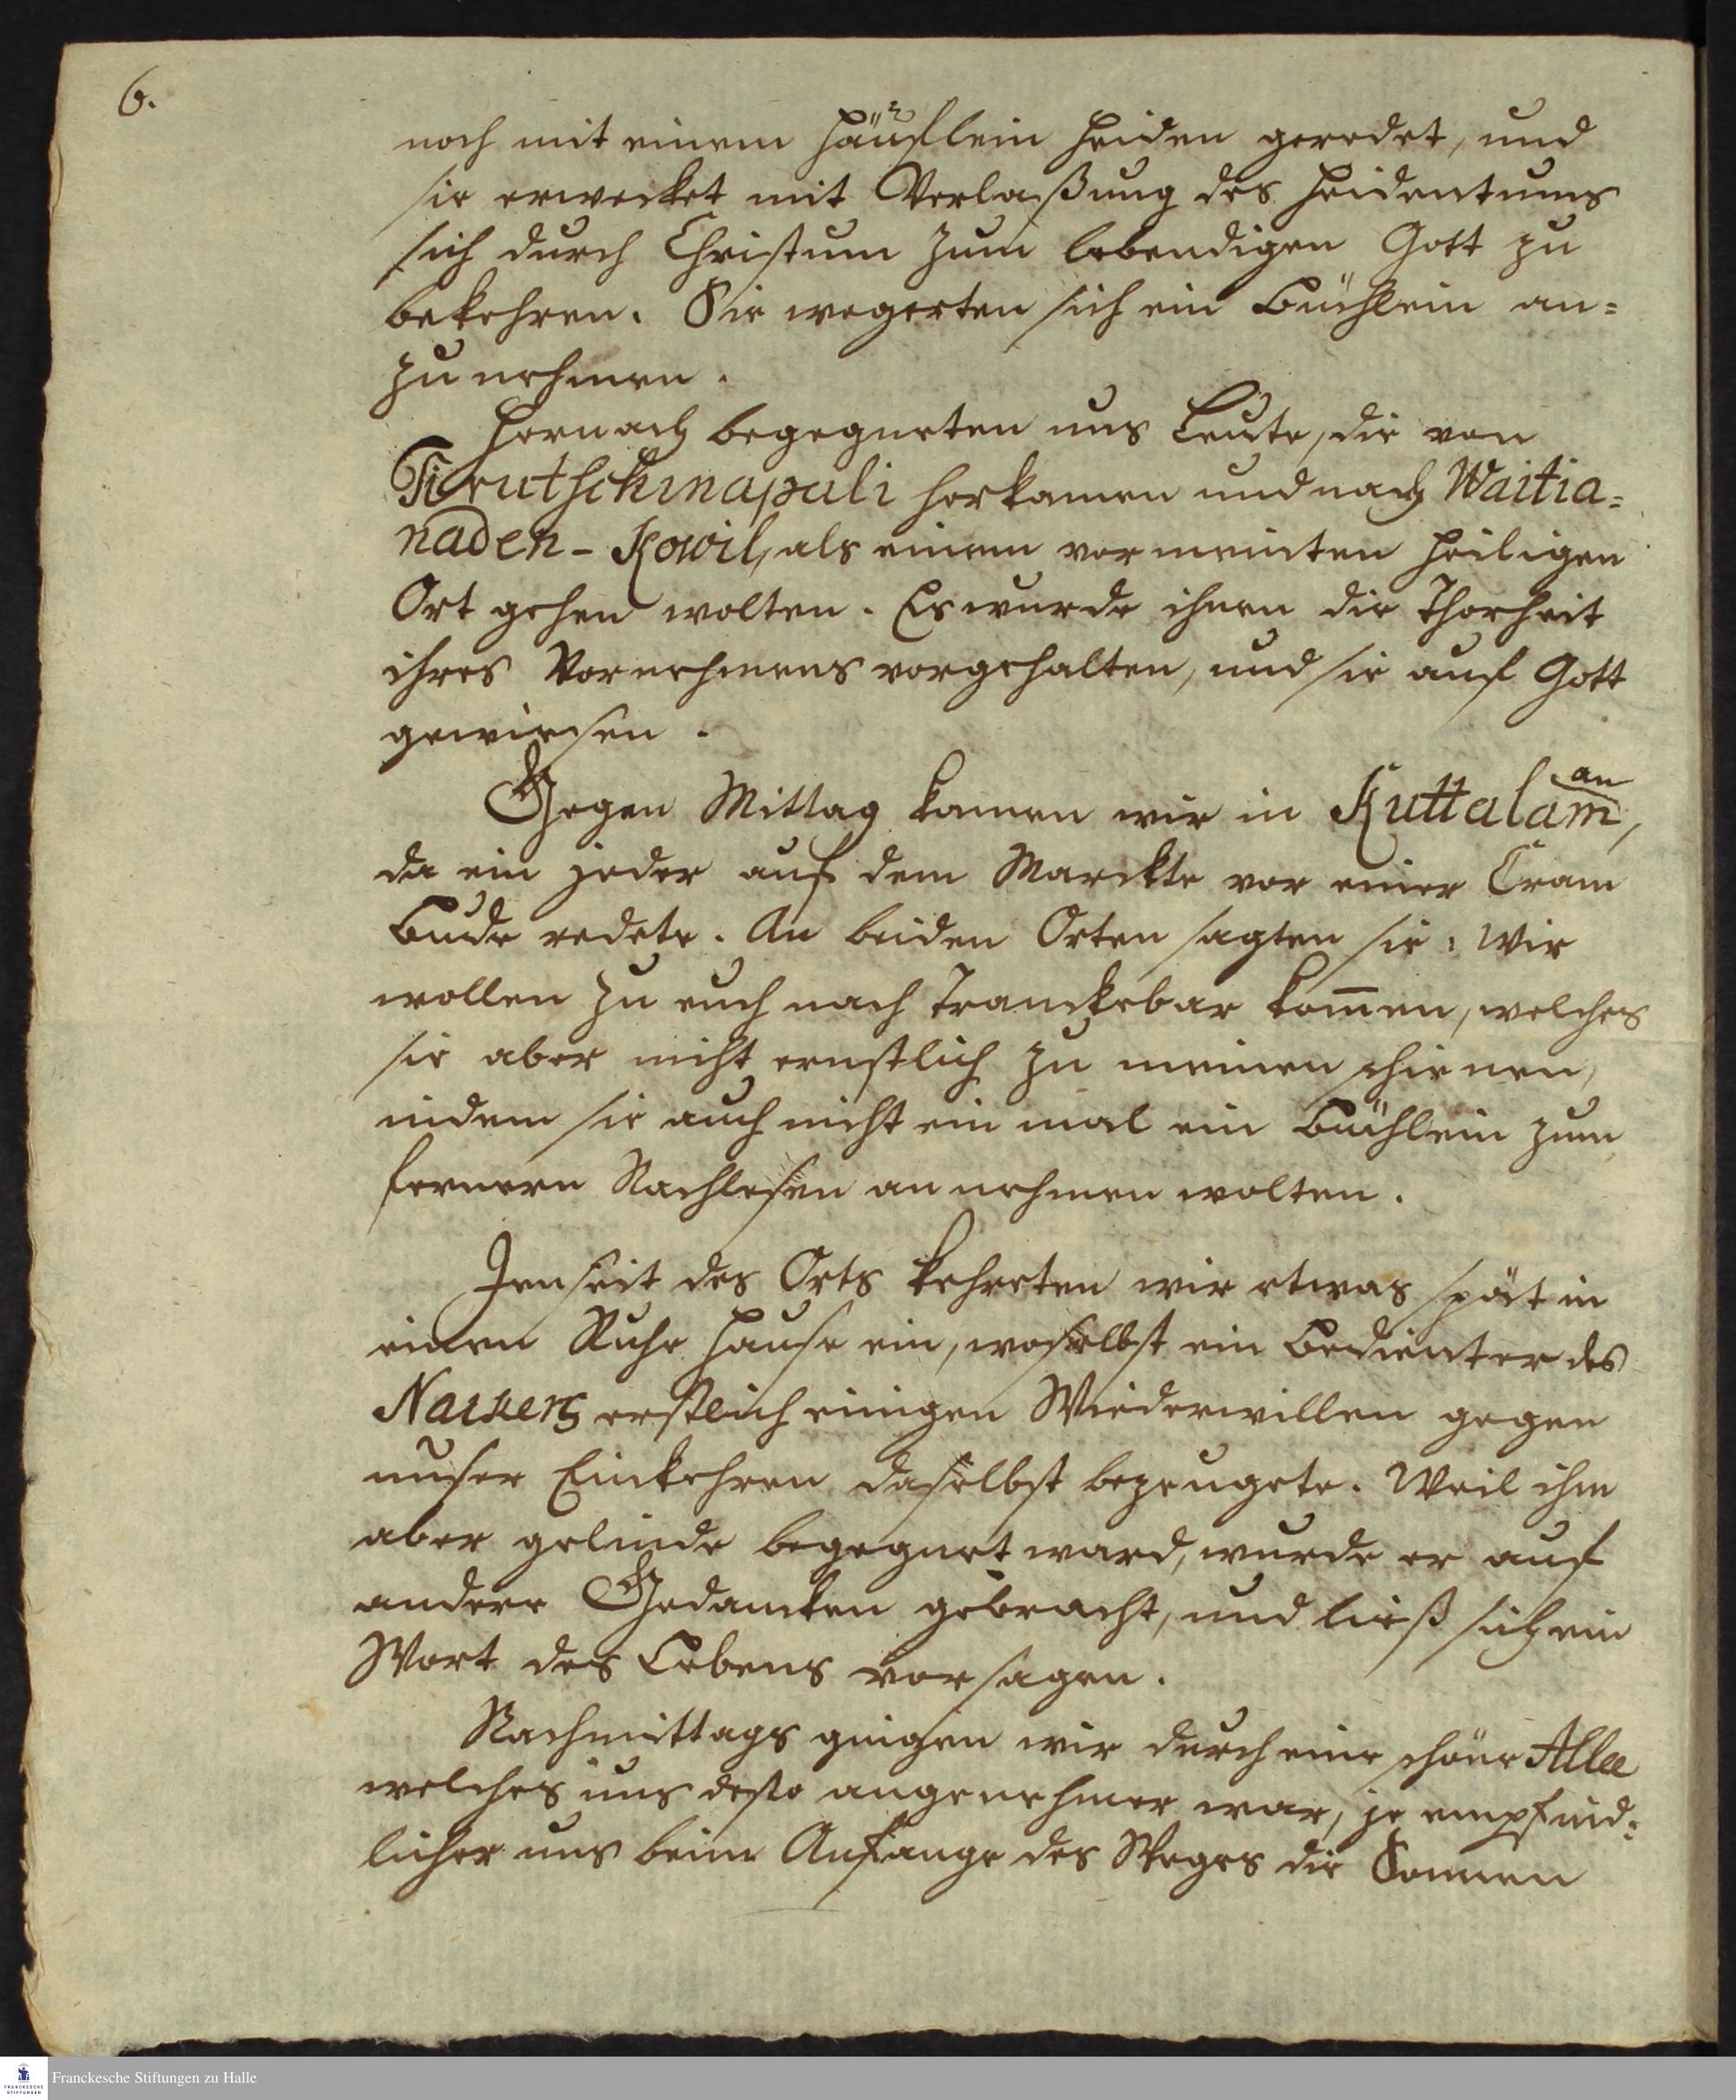 6.
noch mit einem Häuflein Heiden geredet, und
sie erwecket mit Verlaßung des Heidentums
sich durch Christum zum lebendigen Gott zu
bekehren. Sie wegerten sich ein Büchlein an=
zunehmen.
Hernach begegneten uns Leute, die von
Tirutschinapali herkamen und nach Waitia=
naden-Kowil, als einem vermeinten heiligen
Ort gehen wolten. Es wurde ihnen die Thorheit
ihres Vornehmens vorgehalten, und sie auf Gott
gewiesen.
Gegen Mittag kamen wir in Kuttalam an,
da ein jeder auf dem Marckte vor einer Cram
Bude redete. An beiden Orten sagten sie: Wir
wollen zu euch nach Tranckebar kom̄en, welches
sie aber nicht ernstlich zu meinen schienen,
indem sie auch nicht ein mal ein Büchlein zum
fernern Nachlesen annehmen wolten.
Jenseit des Orts kehrten wir etwas spät in
einem Ruhe Hause ein, woselbst ein Bedienter des
Naikers erstlich einigen Wiederwillen gegen
unser Einkehren daselbst bezeugete. Weil ihm
aber gelinde begegnet ward, wurde er auf
andere Gedancken gebracht, und ließ sich ein
Wort des Lebens vorsagen.
Nachmittags gingen wir durch eine schöne Allee
welches uns desto angenehmer war, je empfind=
licher uns beim Anfange des Weges die Sonnen
Franckesche Stiftungen zu Halle
FRANCKESCHE
STIFTUNGEN